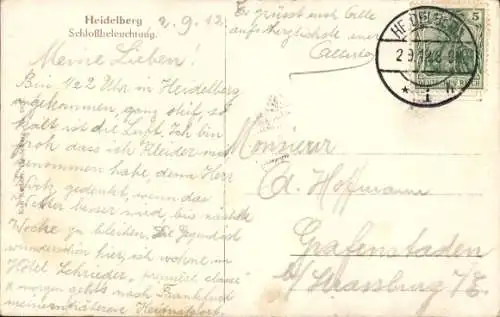 Heidelberg
Schloßbeleuchtung.
2.9.12.
Es grüsst euch Alle
aufs herzlichste euer
Meine Lieben!
Bin ½2 Uhr in Heidelberg
angekommen, ganz steif, so
kalt ist die Luft. Ich bin
froh dass ich Kleider mit
genommen habe, denn Herr
gedenkt, wenn das
Wetter besser wird, bis nächste
Woche zu bleiben. Die Gegend ist
wunderschön hier, ich wohne im
Hôtel Schrieder, "première classe"
morgen gehts nach Frankfurt
meinem späteren Heimatsort.
Monsieur
Ed. Hoffmann
Grafenstaden
b/ Strassburg i/E.
HEIDELBERG
2.9.12.8-9
* 1 h
5
DEUTSCHES REICH